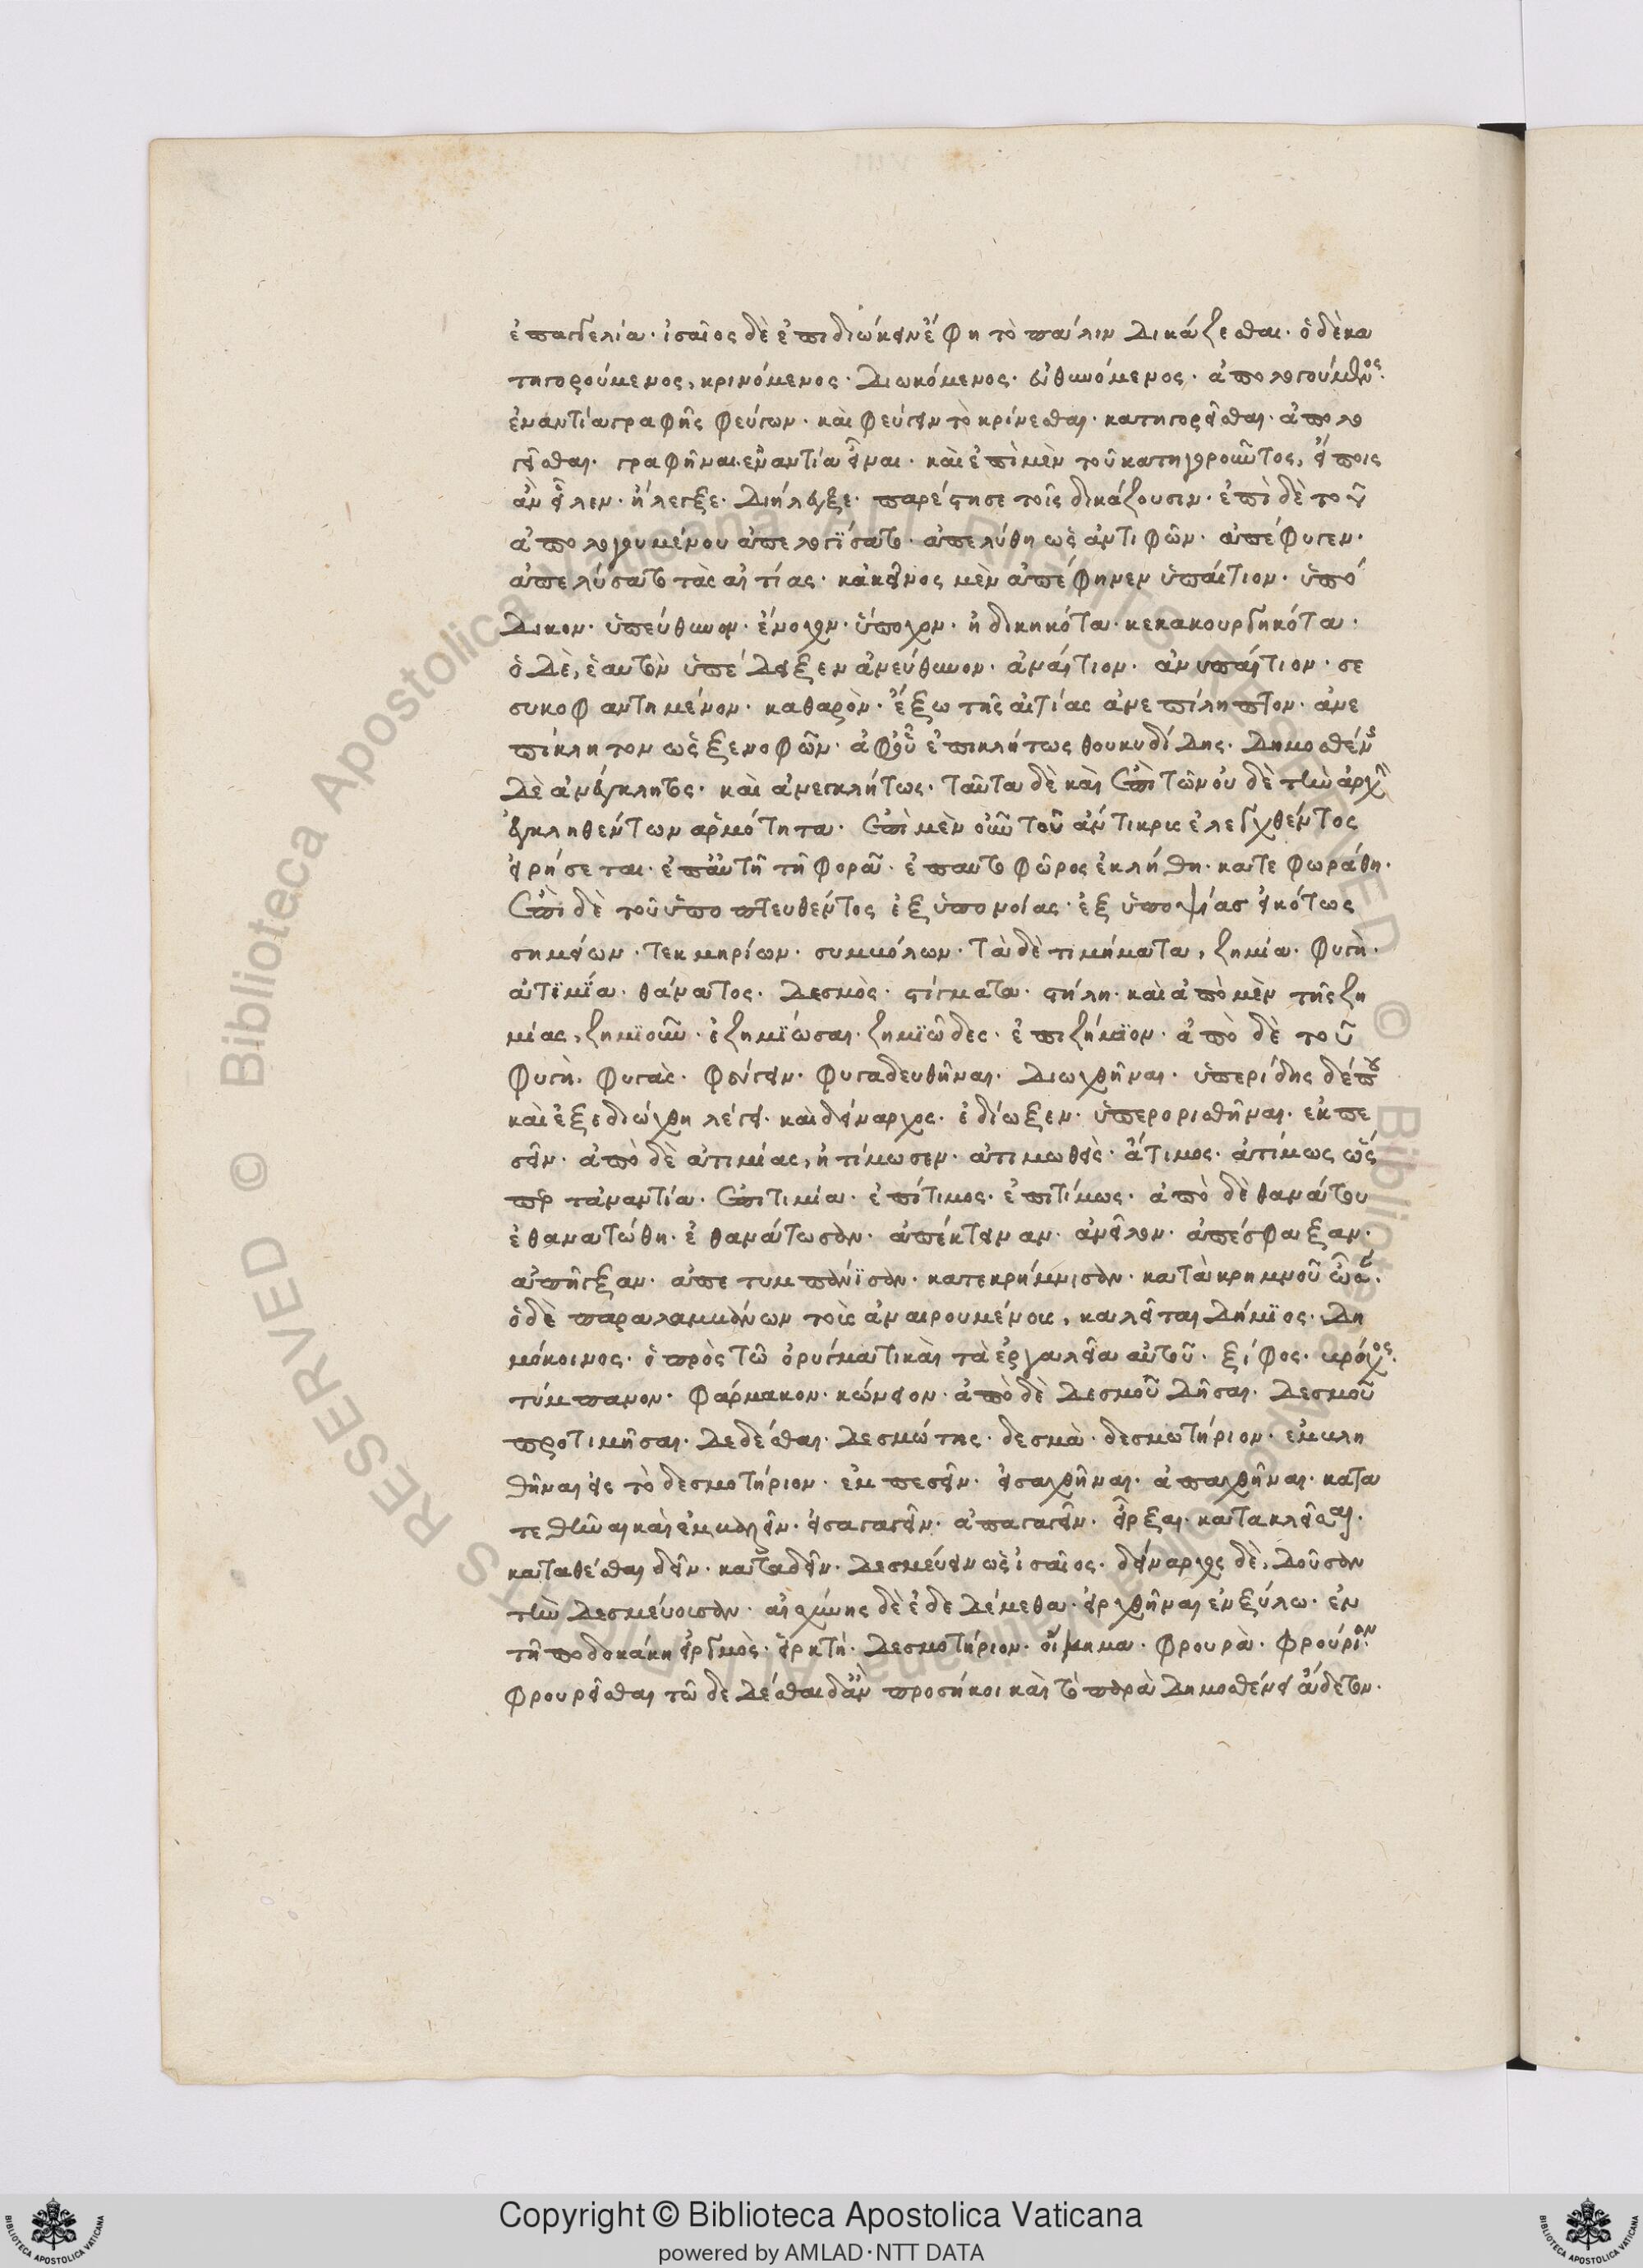 ἐπαγγελία· ἰσαῖος δὲ ἐπιδιώκειν ἔφη τὸ πάλιν δικάζεσθαι· ὁ δὲ κα
τηγορούμενος, κρινόμενος· διωκόμενος· εὐθυνόμενος· ἀπολογούμενος·
ἐναντία γραφῆς φεύγων· καὶ φεύγειν τὸ κρίνεσθαι· κατηγορεῖσθαι· ἀπολο
γεῖσθαι· γραφῆναι ἐναντία εἶναι· καὶ ἐπὶ μὲν τοῦ κατηγοροῦντος, εἴποις
ἂν εἷλεν· ἤλεγξε· διήλεγξε· παρέστησε τοῖς δικάζουσιν· ἐπὶ δὲ τοῦ
ἀπολογουμένου ἀπελογίσατο· ἀπελύθη ὡς ἀντιφῶν· ἀπέφυγεν·
ἀπελύσατο τὰς αἰτίας· κἀκεῖνος μὲν ἀπέφηνεν ὑπαίτιον· ὑπό
δικον· ὑπεύθυνον· ἔνοχον· ὕποχον· ἠδικηκότα· κεκακουργηκότα·
ὁ δὲ, ἑαυτὸν ὑπέδειξεν ἀνεύθυνον· ἀναίτιον· ἀνυπαίτιον· σε
συκοφαντημένον· καθαρὸν· ἔξω τῆς αἰτίας ἀνεπίληπτον· ἀνε
πίκλητον ὡς ξενοφῶν· ἀφ' οὗ ἐπικλήτως θουκυδίδης· δημοσθένης
δὲ ἀνέγκλητος· καὶ ἀνεγκλήτως· ταῦτα δὲ καὶ ἐπὶ τῶν οὐδὲ τὴν ἀρχὴν
ἐγκληθέντων ἁρμότητα· ἐπὶ μὲν οὖν τοῦ ἄντικρις ἐλεγχθέντος
εἰρήσεται· ἐπ' αὐτῆ τῆ φορᾶ· ἐπαυτοφῶρος ἐκλήθη· κατεφωράθη·
ἐπὶ δὲ τοῦ ὑποπτευθέντος ἐξ ὑπονοίας· ἐξ ὑποψίας εἰκότως
σημείων· τεκμηρίων· συμβόλων· τὰ δὲ τιμήματα, ζημία· φυγὴ·
ἀτιμία· θάνατος· δεσμὸς· στίγματα· στήλη· καὶ ἀπὸ μὲν τῆς ζη
μίας, ζημιοῦν· ἐζημίωσαι· ζημιῶδες· ἐπιζήμιον· ἀπὸ δὲ τοῦ
φυγὴ· φυγὰς· φεύγειν· φυγαδευθῆναι· διωχθῆναι· ὑπερίδης δέ που
καὶ ἐξεδιώχθη λέγει· καὶ δείναρχος· ἐδίωξεν· ὑπεροριθῆναι· ἐκπε
σεῖν· ἀπὸ δὲ ἀτιμίας, ἠτίμωσεν· ἀτιμωθεὶς· ἄτιμος· ἀτίμως ὥσ
περ τἀναντία· ἐπιτιμία· ἐπίτιμος· ἐπιτίμως· ἀπὸ δὲ θανάτου
ἐθανατώθη· ἐθανάτωσαν· ἀπέκτειναν· ἀνεῖλον· ἀπέσφαξαν·
ἀπῆγξαν· ἀπετυμπάνισαν· κατεκρήμνισαν· κατὰ κρημνοῦ ὦσαν·
ὁ δὲ παραλαμβάνων τοὺς ἀναιρουμένους, καλεῖται δήμιος· δη
μόκοινος· ὁ πρὸς τῶ ὀρύγματι καὶ τὰ ἐργαλεῖα αὐτοῦ· ξίφος· βρόχος·
τύμπανον· φάρμακον· κώνειον· ἀπὸ δὲ δεσμοῦ δῆσαι· δεσμοῦ
προτιμῆσαι· δεδέσθαι· δεσμώτης· δεσμὰ· δεσμωτήριον· ἐμβλη
θῆναι εἰς τὸ δεσμοτήριον· ἐμπεσεῖν· εἰσαχθῆναι· ἀπαχθῆναι· κατα
τεθῆναι καὶ ἐμβαλεῖν· εἰσαγαγεῖν· ἀπαγαγεῖν· εἷρξαι· κατακλεῖσαι·
καταθέσθαι δεῖν· καταδεῖν· δεσμεύειν ὡς ἰσαῖος· δείναρχος δὲ, δοῦσαν
τὴν δεσμεύουσαν· αἰσχύνης δὲ ἐδεδέμεθα· εἰρχθῆναι ἐν ξύλω· ἐν
τῆ ποδοκάκη εἱργμὸς· εἱρκτή· δεσμοτήριον· οἴκημα· φρουρὰ· φρούριον·
φρουρεῖσθαι τῶ δεδέσθαι δ' ἂν προσήκοι καὶ τὸ παρὰ δημοσθένει ἄδετον·